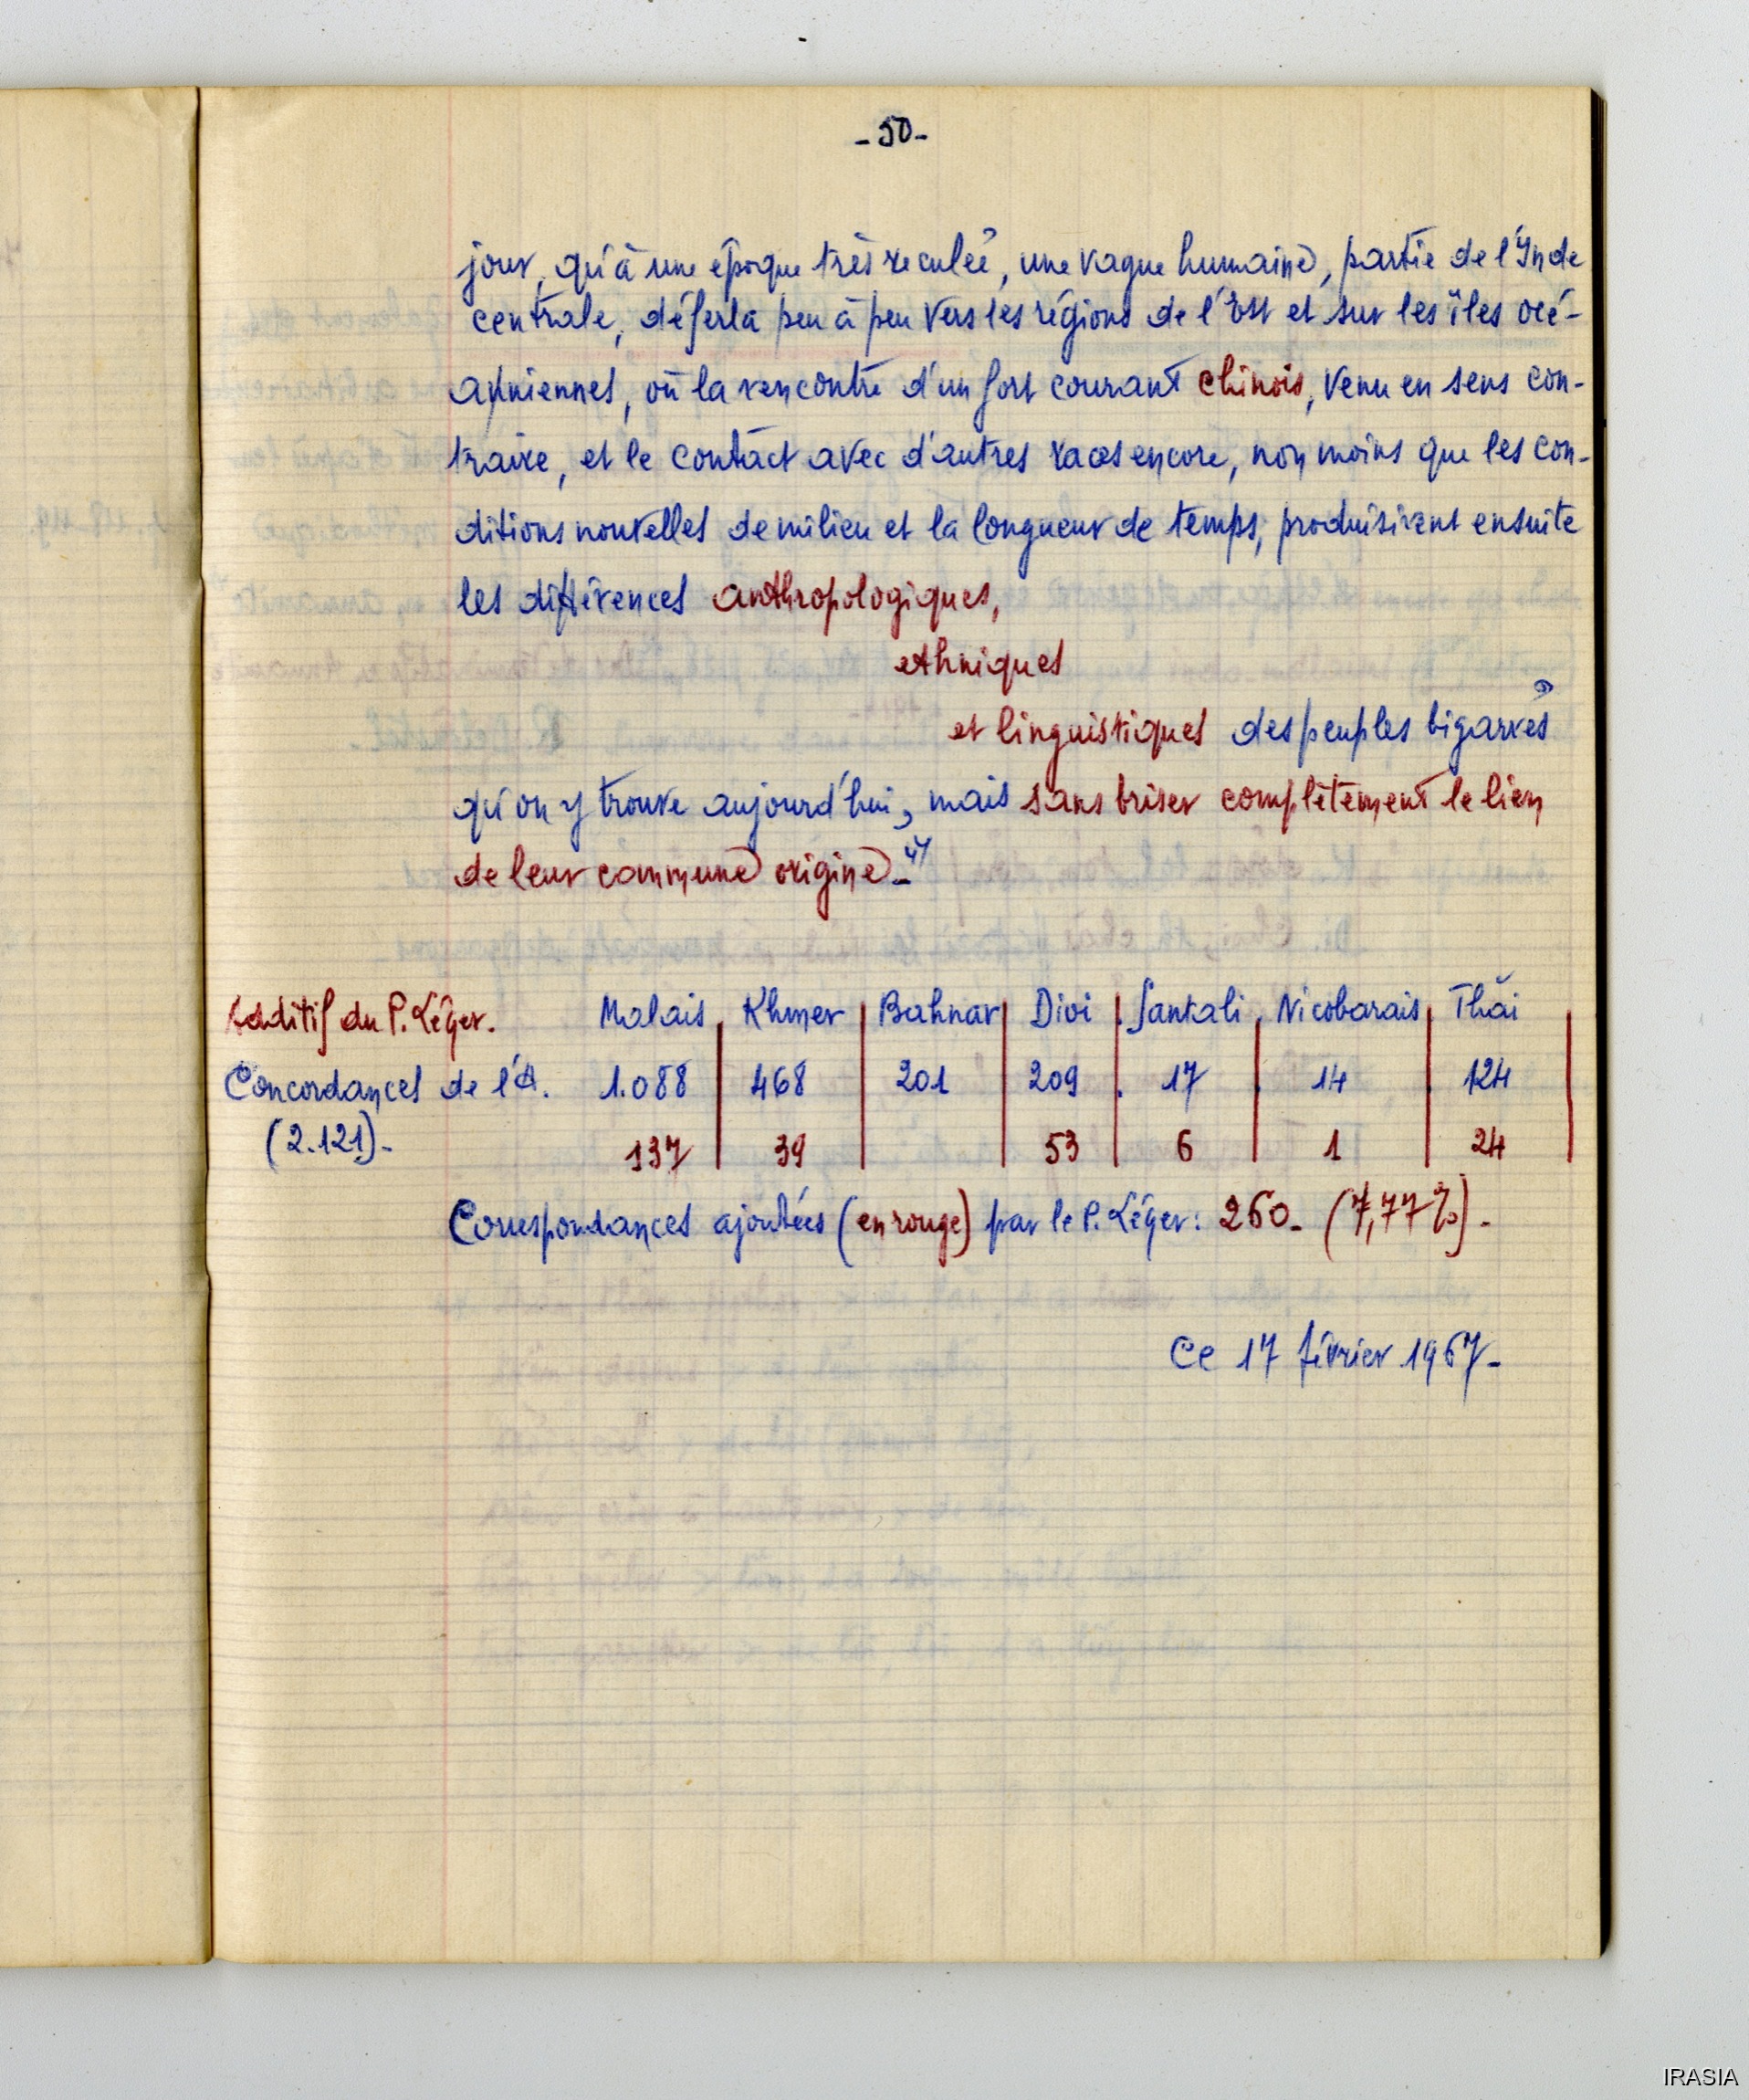 - 50 -
jour, qu'à une époque très reculée, une vague humaine, partie de l'Inde
centrale, déferla peu à peu vers les régions de l'Est et sur les îles océ-
aniennes, où la rencontre d'un fort courant chinois, venu en sens con-
traire, et le contact avec d'autres races encore, non moins que les con-
ditions nouvelles de milieu et la longueur de temps, produisirent ensuite
les différences anthropologiques,
ethniques
et linguistiques des peuples bigarrés
qu'on y trouve aujourd'hui, mais sans briser complètement le lien
de leur commune origine."
Additif du P. Léger. Malais Khmer Bahnar Dioi Santali Nicobarais Thăi
Concordances de l'A. 1.088 468 201 209 17 14 124
(2.121)- 137 39 53 6 1 24
Correspondances ajoutées (en rouge) par le P. Léger: 260. (7,77%).
Ce 17 février 1967-
IRASIA